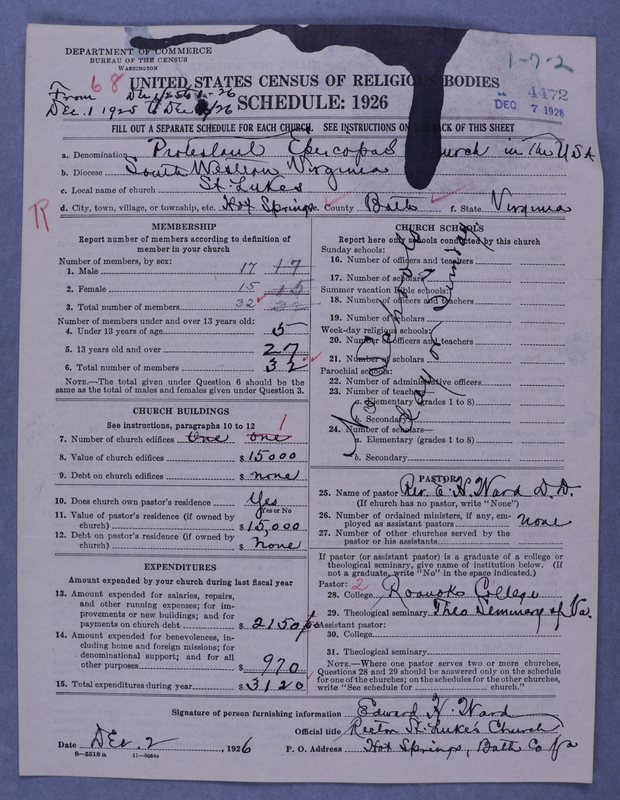 DEPARTMENT OF COMMERCE
BUREAU OF THE CENSUS
WASHINGTON
1-7-2
68
UNITED STATES CENSUS OF RELIGIOUS BODIES
SCHEDULE: 1926
4472
DEC 7 1926
From
Dec. 1 1925 to Dec 1/26
FILL OUT A SEPARATE SCHEDULE FOR EACH CHURCH. SEE INSTRUCTIONS ON THE BACK OF THIS SHEET
a. Denomination Protestant Episcopal Church in the USA
b. Diocese South Western Virginia
c. Local name of church St. Lukes
d. City, town, village, or township, etc. Hot Springs County Bath f. State Virginia
MEMBERSHIP
Report number of members according to definition of
member in your church
Number of members, by sex:
1. Male 17 17
2. Female 15 15
3. Total number of members 32 32
Number of members under and over 13 years old:
4. Under 13 years of age 5
5. 13 years old and over 27
6. Total number of members 32
NOTE.—The total given under Question 6 should be
the same as the total of males and females given under Question 3.
CHURCH BUILDINGS
See instructions, paragraphs 10 to 12
7. Number of church edifices One one 1
8. Value of church edifices $ 15000
9. Debt on church edifices $ none
10. Does church own pastor's residence Yes
Yes or No
11. Value of pastor's residence (if owned by
church) $ 15,000
12. Debt on pastor's residence (if owned by
church) $ none
EXPENDITURES
Amount expended by your church during last fiscal year
13. Amount expended for salaries, repairs,
and other running expenses; for im-
provements or new buildings; and for
payments on church debt $ 2150
14. Amount expended for benevolences, in-
cluding home and foreign missions; for
denominational support; and for all
other purposes $ 970
15. Total expenditures during year $ 3120
CHURCH SCHOOLS
Report here only schools conducted by this church
Sunday schools:
16. Number of officers and teachers
17. Number of scholars
Summer vacation Bible schools:
18. Number of officers and teachers
19. Number of scholars
Week-day religious schools:
20. Number of officers and teachers
21. Number of scholars
Parochial schools:
22. Number of administrative officers
23. Number of teachers—
a. Elementary (grades 1 to 8)
b. Secondary
24. Number of scholars—
a. Elementary (grades 1 to 8)
b. Secondary
No
day or Sunday
PASTOR
25. Name of pastor Rev. E. H. Ward D. D.
(If church has no pastor, write "None")
26. Number of ordained ministers, if any, em-
ployed as assistant pastors none
27. Number of other churches served by the
pastor or his assistants
If pastor (or assistant pastor) is a graduate of a college or
theological seminary, give name of institution below. (If
not a graduate, write "No" in the space indicated.)
Pastor: 2
28. College Roanoke College
29. Theological seminary Theo Seminary of Va.
Assistant pastor:
30. College
31. Theological seminary
NOTE.—Where one pastor serves two or more churches,
Questions 28 and 29 should be answered only on the schedule
for one of the churches; on the schedules for the other churches,
write "See schedule for church."
Signature of person furnishing information Edward H. Ward
Official title Rector St. Luke's Church
Date Dec. 2, 1926 P. O. Address Hot Springs, Bath Co Va
8—5518 a 11—9054a